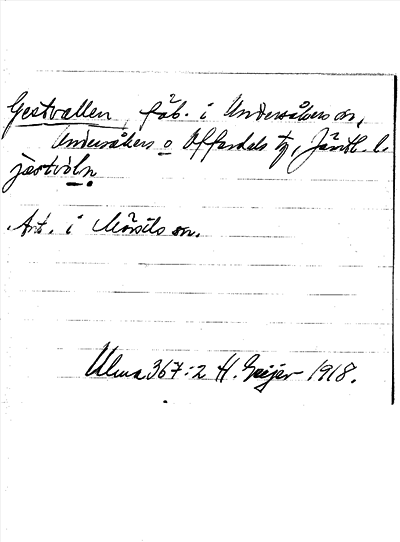 Gestvallen, fäb. i Undersåkers sn,
Undersåkers o Offerdals tg, Jämtl. l.
jæstvòln
Ant. i Mörsils sn.
Ulma 367:2 H. Geijer 1918.